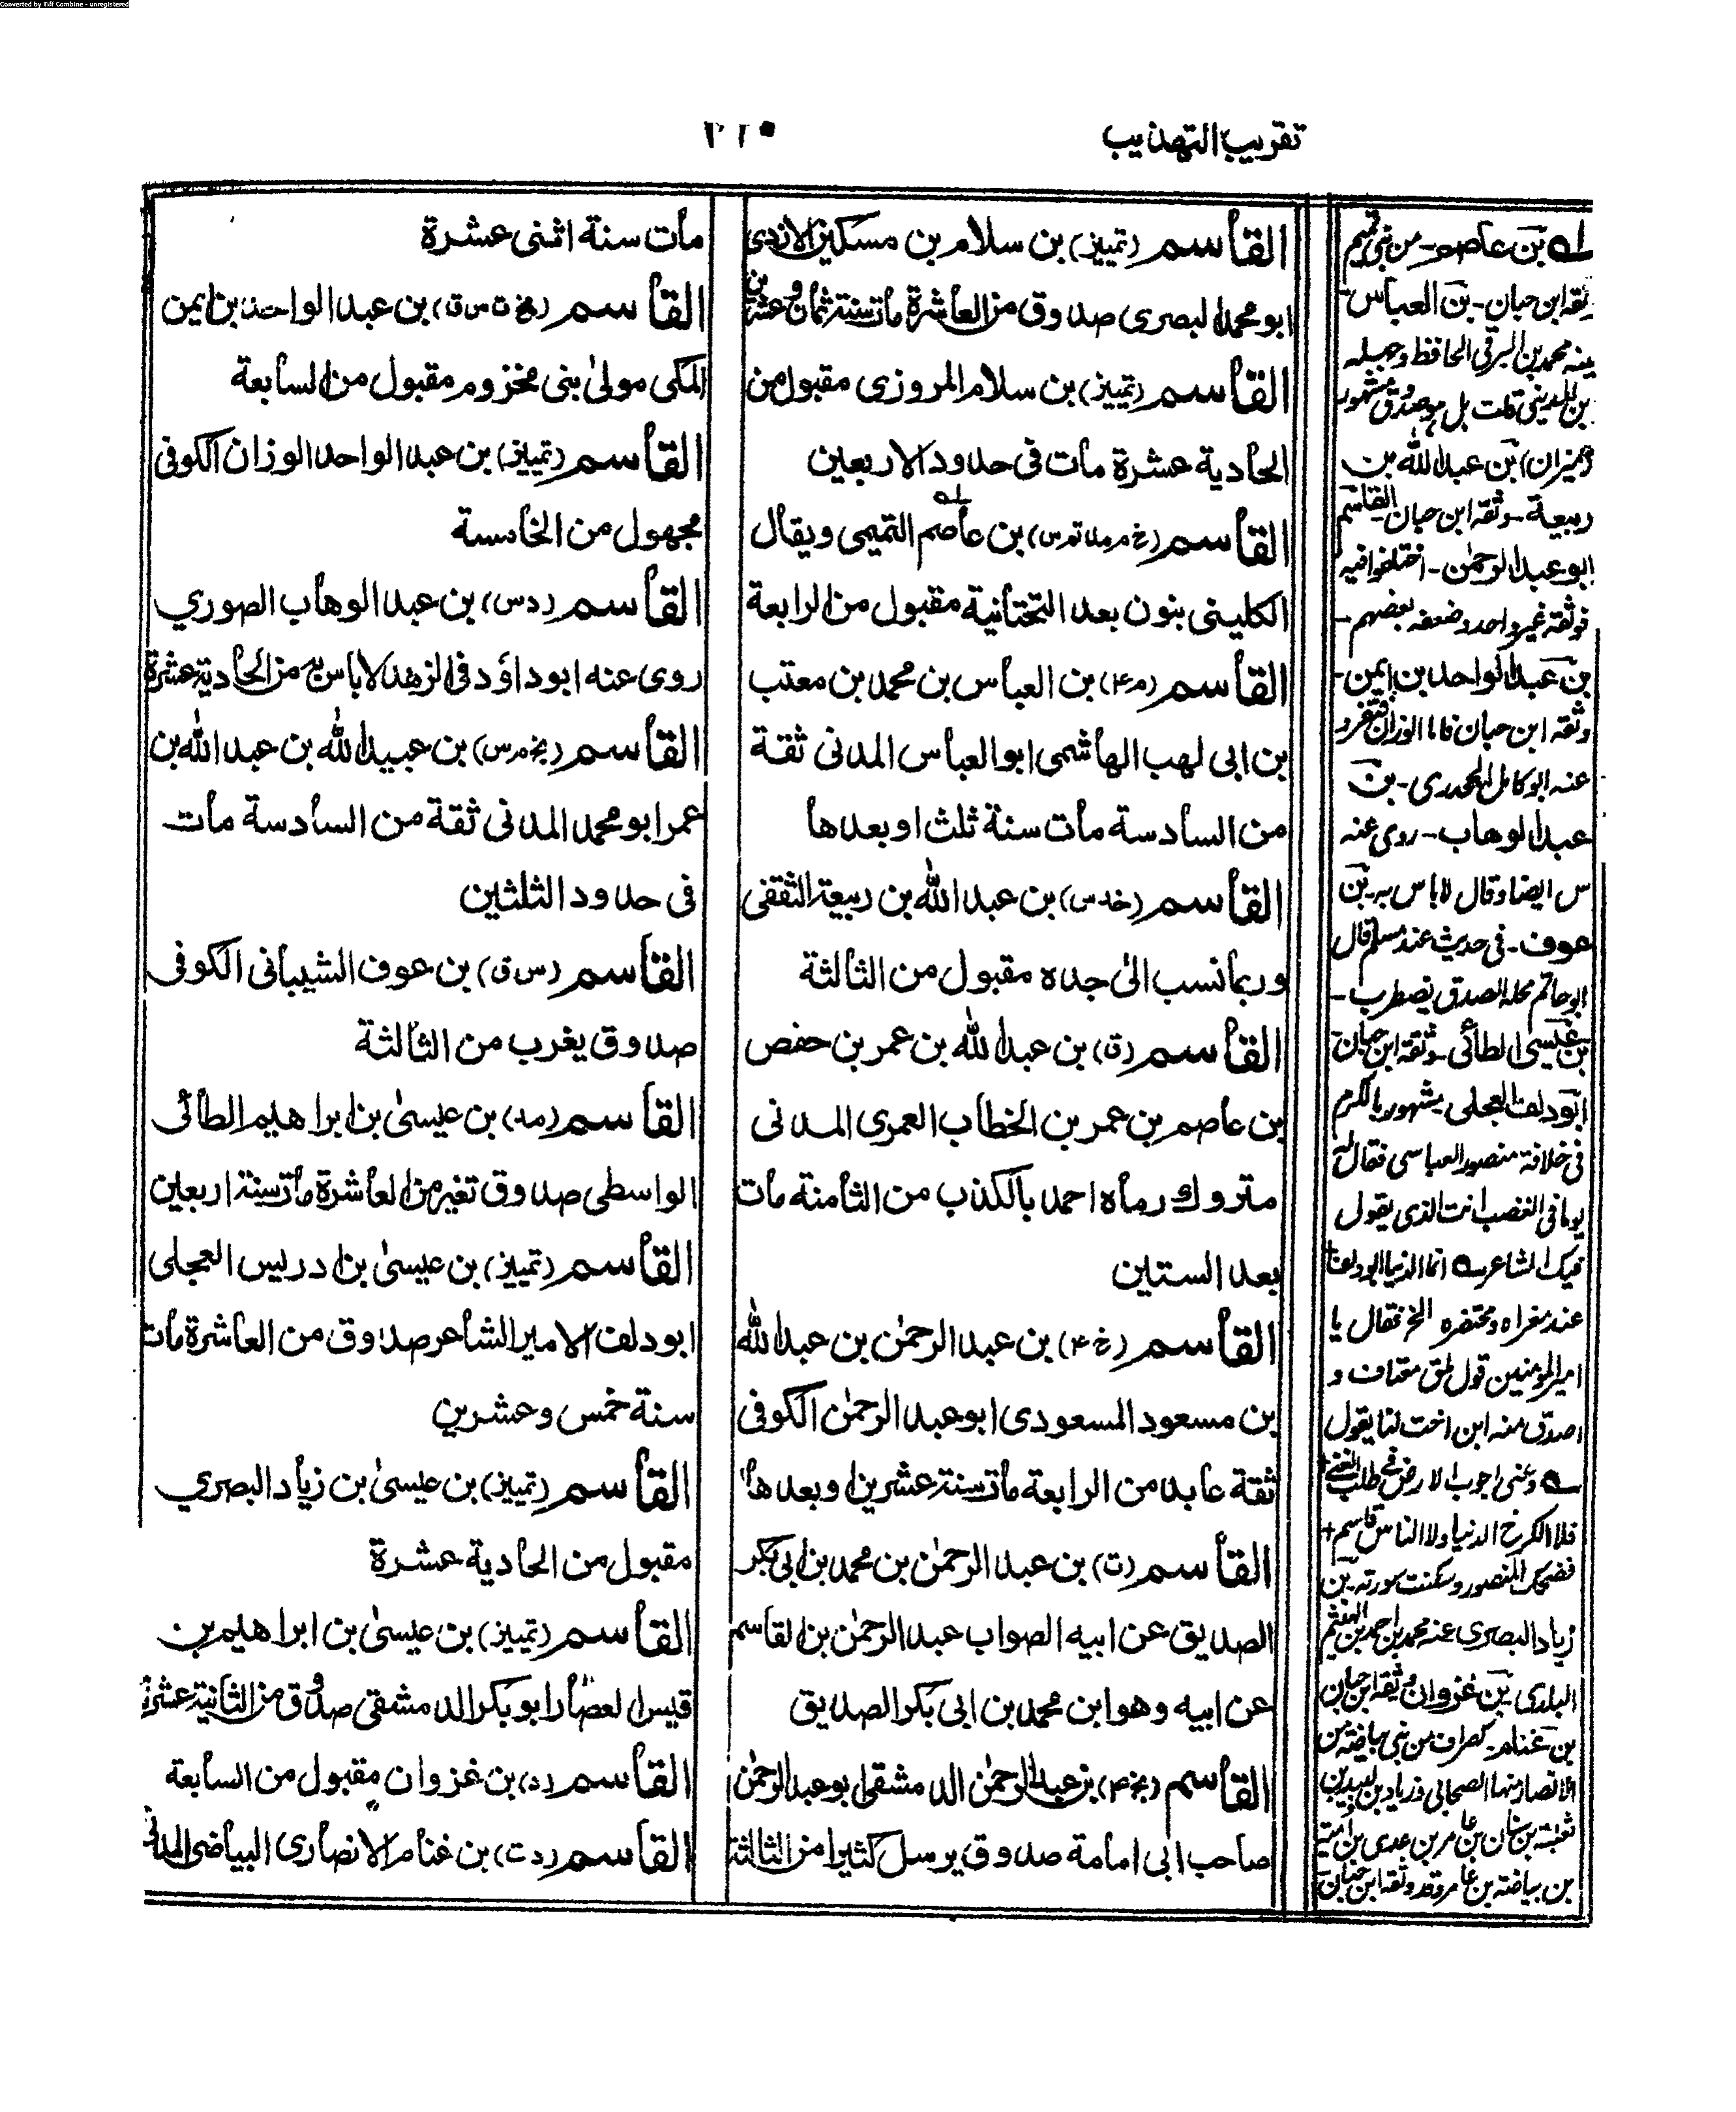 Converted by Tiff Combine - unregistered
تقريب التهذيب
٣١٠
القاسم (تمييز) بن سلام بن مسكين الازدى
ابو محمد البصرى صدوق من العاشرة مات سنة ثمان وعشرين
القاسم (تمييز) بن سلام المروزى مقبول من
الحادية عشرة مات فى حدود الاربعين
القاسم بن عاصم التميمى ويقال
الكلينى بنون بعد التحتانية مقبول من الرابعة
القاسم (م۴) بن العباس بن محمد بن معتب
بن ابى لهب الهاشمى ابو العباس المدنى ثقة
من السادسة مات سنة ثلث او بعدها
القاسم (خد س) بن عبد الله بن ربيعة الثقفى
وربما نسب الى جده مقبول من الثالثة
القاسم (ق) بن عبد الله بن عمر بن حفص
بن عاصم بن عمر بن الخطاب العمرى المدنى
متروك رماه احمد بالكذب من الثامنة مات
بعد الستين
القاسم (خ ۴) بن عبد الرحمٰن بن عبد الله
بن مسعود المسعودى ابو عبد الرحمٰن الكوفى
ثقة عابد من الرابعة مات سنة عشرين او بعدها
القاسم (ت) بن عبد الرحمٰن بن محمد بن ابى بكر
الصديق عن ابيه الصواب عبد الرحمٰن بن القاسم
عن ابيه وهو ابن محمد بن ابى بكر الصديق
القاسم (بخ ۴) بن عبد الرحمٰن الدمشقى ابو عبد الرحمٰن
صاحب ابى امامة صدوق يرسل كثيرا من الثالثة
مات سنة اثنى عشرة
القاسم (بخ ت س ق) بن عبد الواحد بن ايمن
المكى مولىٰ بنى مخزوم مقبول من السابعة
القاسم (تمييز) بن عبد الواحد الوزان الكوفى
مجهول من الخامسة
القاسم (د س) بن عبد الوهاب الصوري
روى عنه ابو داؤد فى الزهد لا باس به من الحادية عشرة
القاسم (بخ م س) بن عبيد الله بن عبد الله بن
عمر ابو محمد المدنى ثقة من السادسة مات
فى حدود الثلثين
القاسم (س ق) بن عوف الشيبانى الكوفى
صدوق يغرب من الثالثة
القاسم (مد) بن عيسىٰ بن ابراهيم الطائى
الواسطى صدوق تغير من العاشرة مات سنة اربعين
القاسم (تمييز) بن عيسىٰ بن ادريس العجلى
ابو دلف الامير الشاعر صدوق من العاشرة مات
سنة خمس وعشرين
القاسم (تمييز) بن عيسىٰ بن زياد البصري
مقبول من الحادية عشرة
القاسم (تمييز) بن عيسىٰ بن ابراهيم بن
قيس العصار ابو بكر الدمشقى صدوق من الثانية عشرة
القاسم (د) بن غزوان مقبول من السابعة
القاسم (د ت) بن غنام الانصارى البياضى المدنى
له بن عاصم - من بنى تميم
ثقه ابن حبان - بن العباس -
محمد بن البرقى الحافظ
بن المدينى قلت بل هو صدوق مشهور
(ميزان) بن عبد الله بن
ربيعة - وثقه ابن حبان القاسم
ابو عبد الرحمٰن - اختلفوا فيه
فوثقه غير واحد وضعفه بعضهم -
بن عبد الواحد بن ايمن -
وثقه ابن حبان فاما الوزان فتفرد
عنه ابو كامل الجحدرى - بن
عبد الوهاب - روى عنه
س ايضا وقال لا باس به - بن
عوف - فى حديث عند مسلم قال
ابو حاتم محله الصدق يضطرب -
بن عيسى الطائى - وثقه ابن حبان
ابو دلف العجلى مشهور بالكرم
فى خلافة منصور العباسى فقال له
يوما فى الغضب انت الذى يقول
فيك الشاعر انما الدنيا ابو دلف
عند مغزاه ومحتضره الخ فقال يا
امير المؤمنين قول
اصدق منه ابن اخت لنا يقول
اجوب الارض فى طلب الغنى
فلا الكرخ الدنيا ولا الناس قاسم
فضحك المنصور وسكنت سورته - بن
زياد البصرى عنه محمد بن احمد بن الهيثم
البلدى بن غزوان وثقه ابن حبان
بن غنام - من بنى بياضة من
الانصار منها الصحابى زياد بن لبيد بن
ثعلبة بن سنان بن عامر بن عدى بن امية
بن بياضة بن عامر وقد وثقه ابن حبان